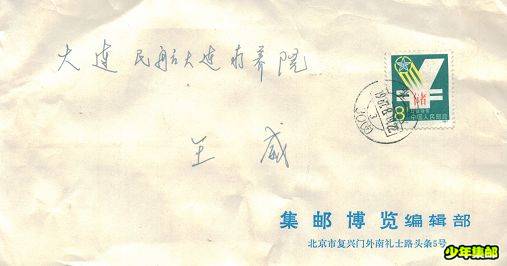 大连民航大连疗养院
王威
储
8分
中国人民邮政
集邮博览编辑部
北京市复兴门外南礼士路头条5号
少年集邮